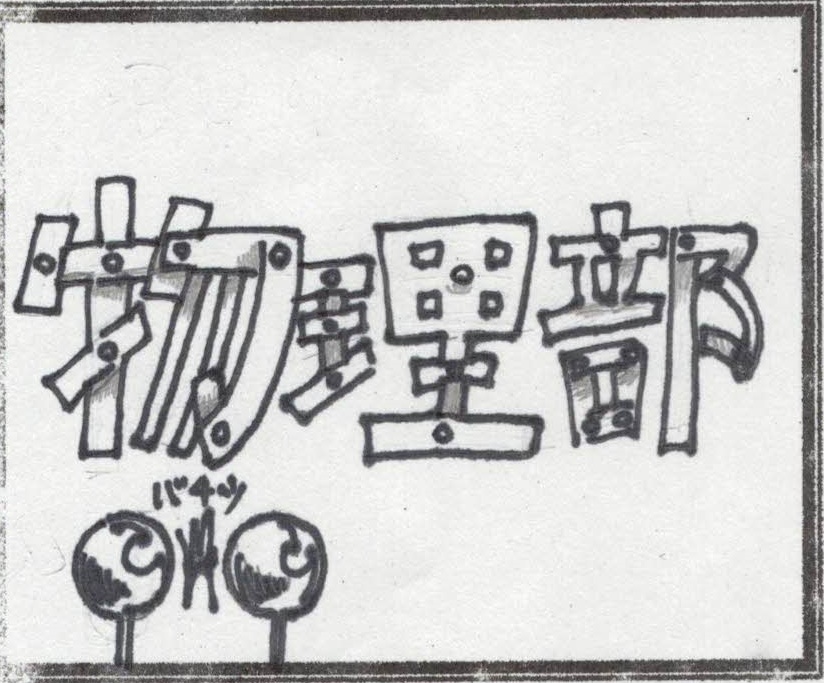 物理部
バチッ